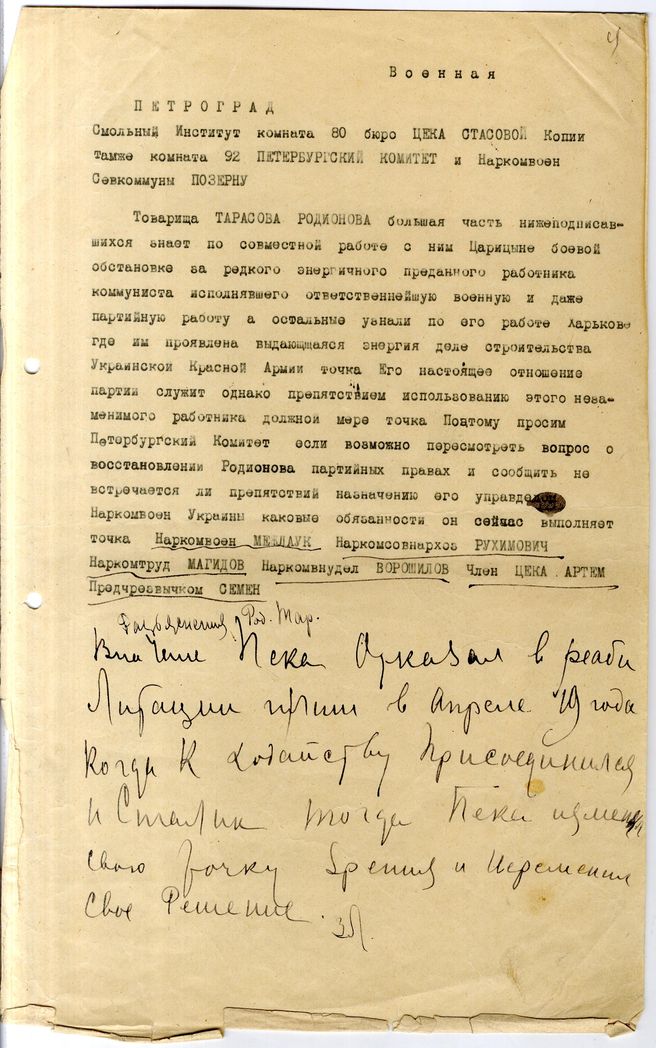 Военная
ПЕТРОГРАД
Смольный Институт комната 80 бюро ЦЕКА СТАСОВОЙ Копии
Тамже комната 92 ПЕТЕРБУРГСКИЙ КОМИТЕТ и Наркомвоен
Севкоммуны ПОЗЕРНУ
Товарища ТАРАСОВА РОДИОНОВА большая часть нижеподписав-
шихся знает по совместной работе с ним Царицыне боевой
обстановке за редкого энергичного преданного работника
коммуниста исполнявшего ответственнейшую военную и даже
партийную работу а остальные узнали по его работе Харькове
где им проявлена выдающаяся энергия деле строительства
Украинской Красной Армии точка Его настоящее отношение
партии служит однако препятствием использованию этого неза-
менимого работника должной мере точка Поэтому просим
Петербургский Комитет если возможно пересмотреть вопрос о
восстановлении Родионова партийных правах и сообщить не
встречается ли препятствий назначению его управделом
Наркомвоен Украины каковые обязанности он сейчас выполняет
точка Наркомвоен МЕЖЛАУК Наркомсовнархоз РУХИМОВИЧ
Наркомтруд МАГИДОВ Наркомвнудел ВОРОШИЛОВ Член ЦЕКА АРТЕМ
Предчрезвычком СЕМЕН
Род. Тар.
Вначале Пека Отказал в реаби
литации в Апреле 19 года
когда К ходатайству Присоединился
и Сталин тогда Пека
свою Точку Зрения и Переменил
Свое Решение.